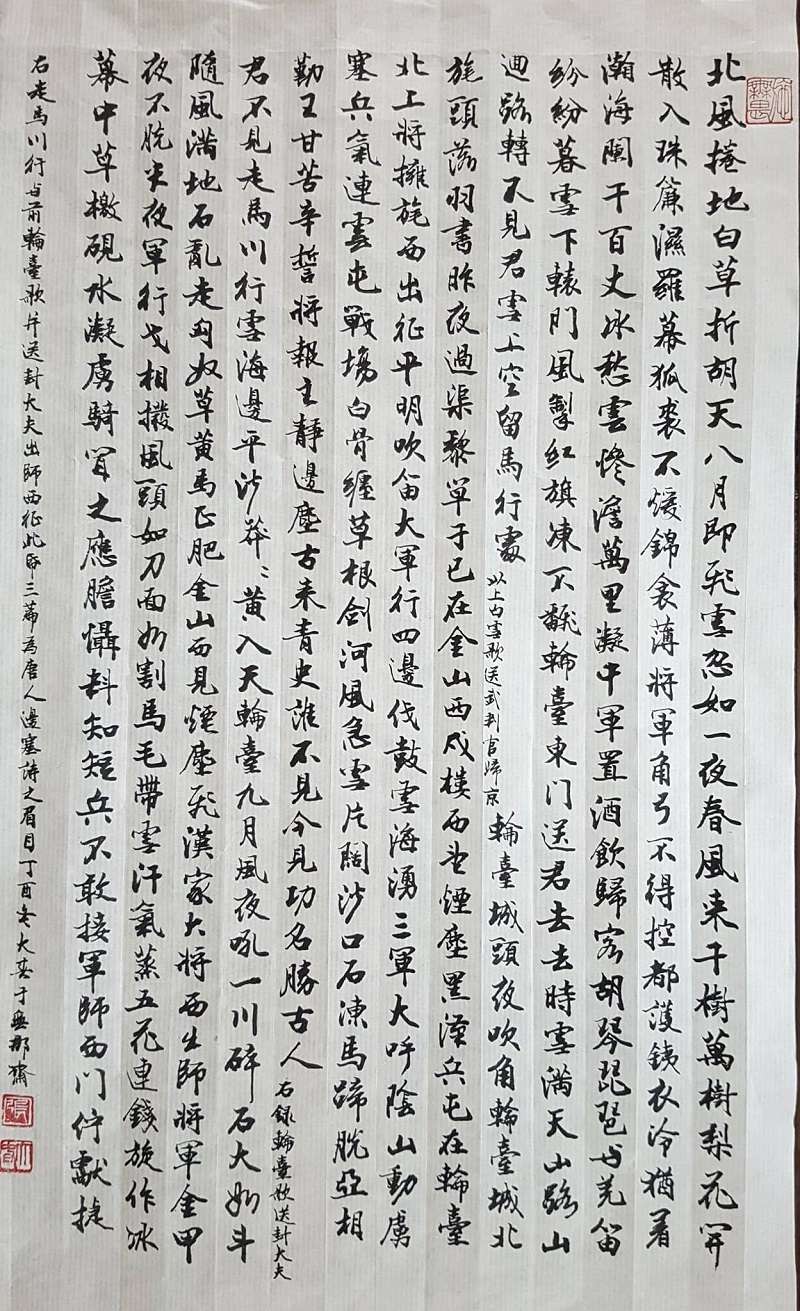 北風捲地白草折胡天八月即飛雪忽如一夜春風来千樹萬樹梨花開
散入珠簾濕羅幕狐裘不煖錦衾薄將軍角弓不得控都護鉄衣冷猶着
瀚海闌干百丈冰愁雲惨澹萬里凝中軍置酒飲歸客胡琴琵琶与羌笛
紛紛暮雪下轅門風掣紅旗凍不翻輪臺東门送君去去時雪满天山路山
迴路轉不見君雪上空留馬行處 以上白雪歌送武判官歸京 輪臺城頭夜吹角輪臺城北
旄頭落羽書昨夜過渠黎單于已在金山西戍樓西望煙塵黑漢兵屯在輪臺
北上將擁旄西出征平明吹笛大軍行四邊伐鼓雪海湧三軍大呼陰山動虜
塞兵氣連雲屯戰場白骨纏草根剑河風急雪片闊沙口石凍馬蹄脱亞相
勤王甘苦辛誓將報主靜邊塵古来青史誰不見今見功名勝古人 右録輪臺歌送封大夫
君不見走馬川行雪海邊平沙莽〻黄入天輪臺九月風夜吼一川碎石大如斗
隨風满地石亂走匈奴草黄馬正肥金山西見煙塵飛漢家大將西出師將軍金甲
夜不脱半夜軍行戈相撥風頭如刀面如割馬毛帶雪汗氣蒸五花連錢旋作冰
幕中草檄硯水凝虜騎聞之應膽懾料知短兵不敢接軍師西門佇獻捷
右走馬川行与前輪臺歌并送封大夫出師西征此 三篇為唐人邊塞詩之眉目丁酉冬大 于無邪齋